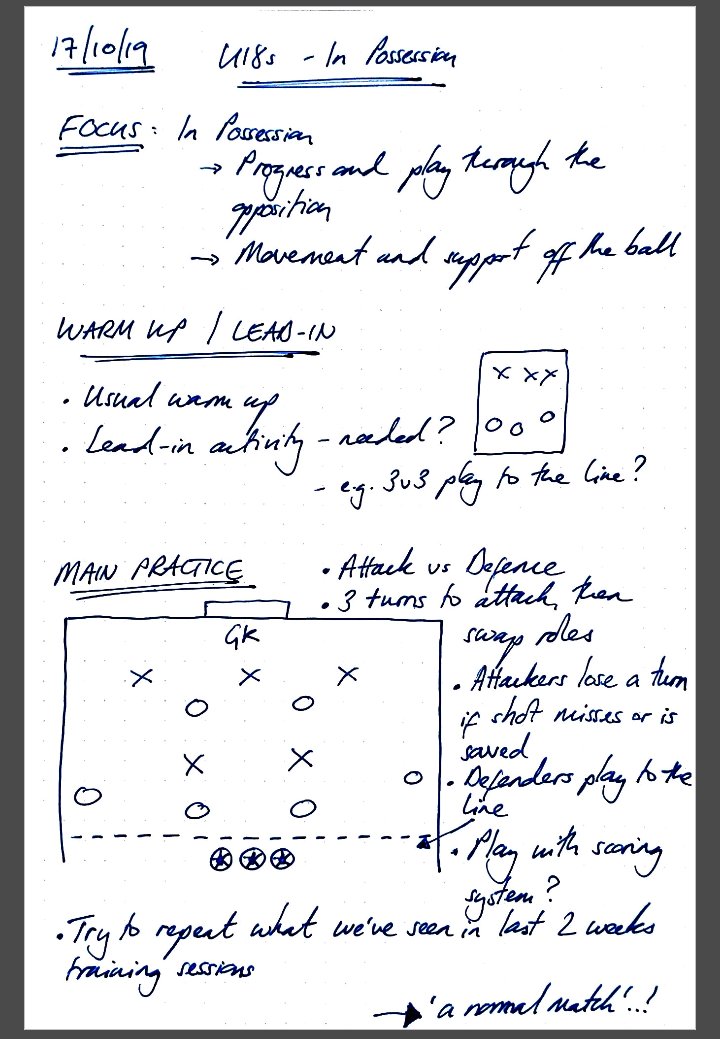 17/10/19 U18s - In Possession
FOCUS: In Possession
→ Progress and play through the
opposition
→ Movement and support off the ball
WARM UP / LEAD-IN
• Usual warm up
• Lead-in activity - needed?
- e.g. 3v3 play to the line?
X XX
O O O
MAIN PRACTICE
• Attack vs Defence
• 3 turns to attack, then
swap roles
• Attackers lose a turn
if shot misses or is
saved
• Defenders play to the
line
• Play with scoring
system?
GK
X X X
O O
X X
O O O O
• Try to repeat what we've seen in last 2 weeks
training sessions
→ 'a normal match'..!